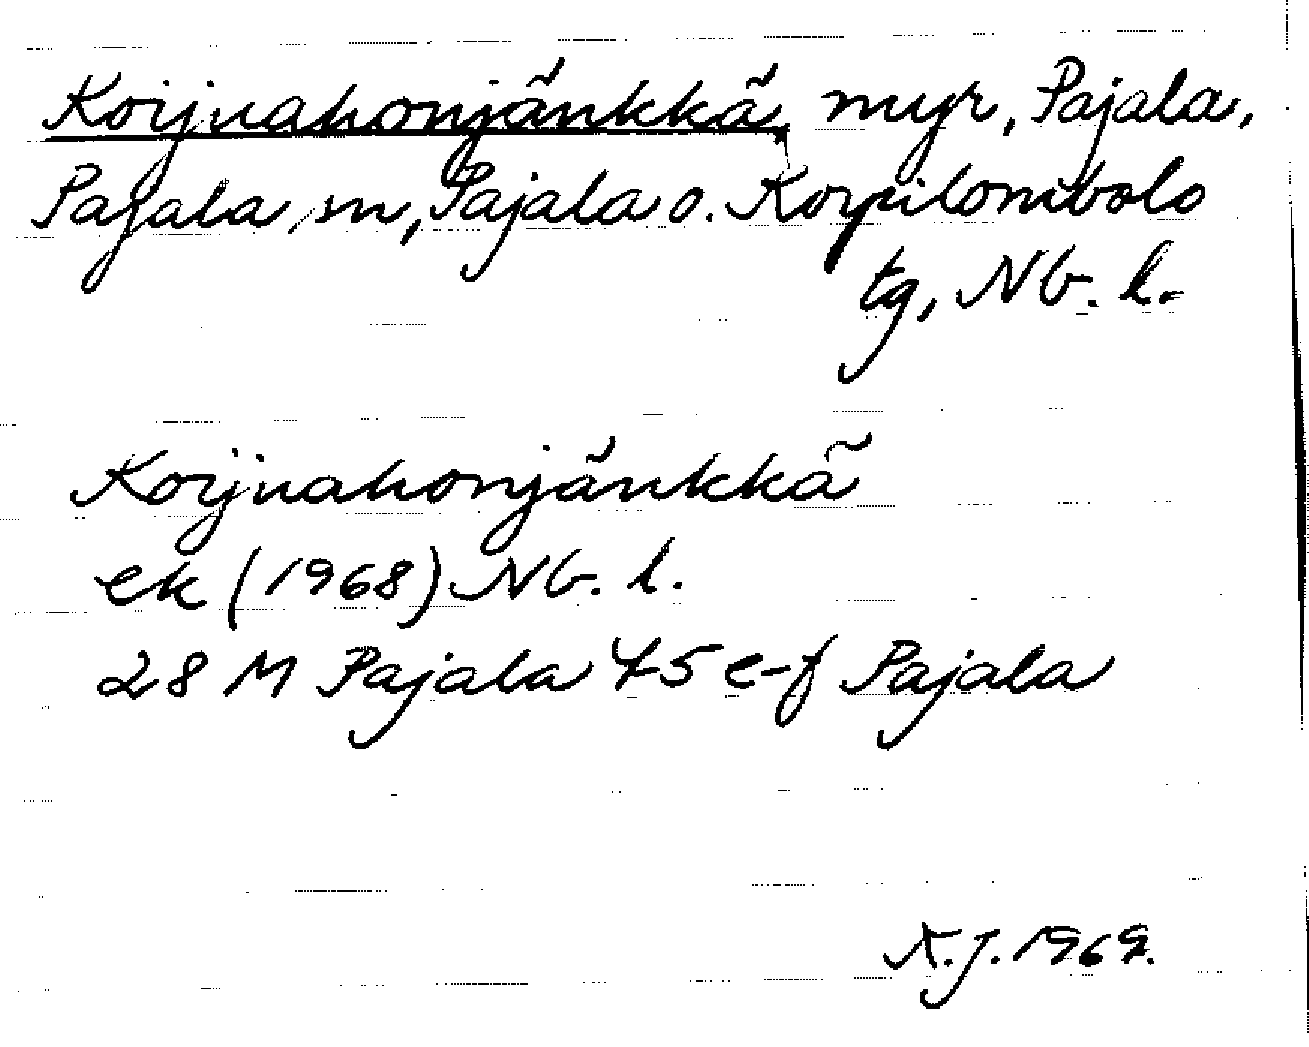 Koijuahonjänkkä, myr, Pajala,
Pajala sn, Pajala o. Korpilombolo
tg, Nb. l.
Koijuahonjänkkä
ek (1968) Nb. l.
28 M Pajala 45 e-f Pajala
A.J. 1969.